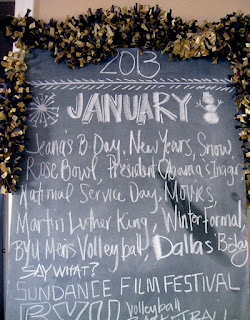 2013
JANUARY!
Jeana's B-Day, New Years, Snow
Rose Bowl, President Obama's Inagur
National Service Day, Movies,
Martin Luther King, Winter Formal
BYU Men's Volleyball, Dallas' B-day
SAY WHAT?
SUNDANCE FILM FESTIVAL
BYU Volleyball
BASKETBALL